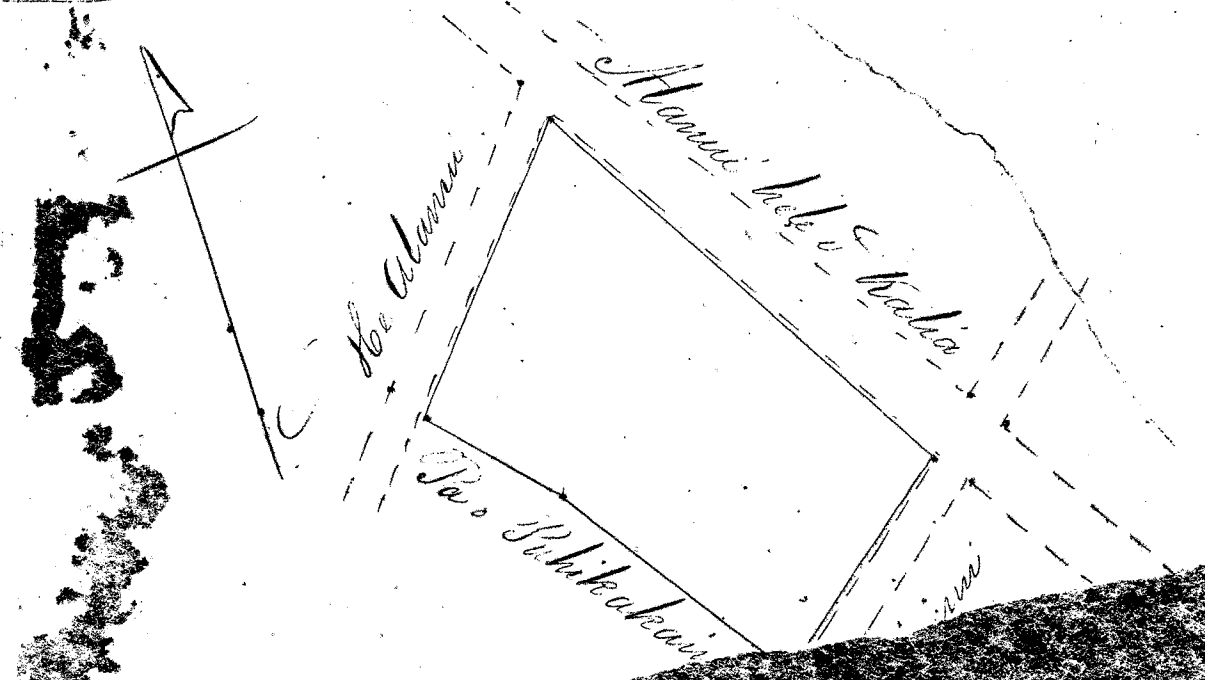 Alanui hele i Kalia
He Alanui
Pa o Puhikakai
nui